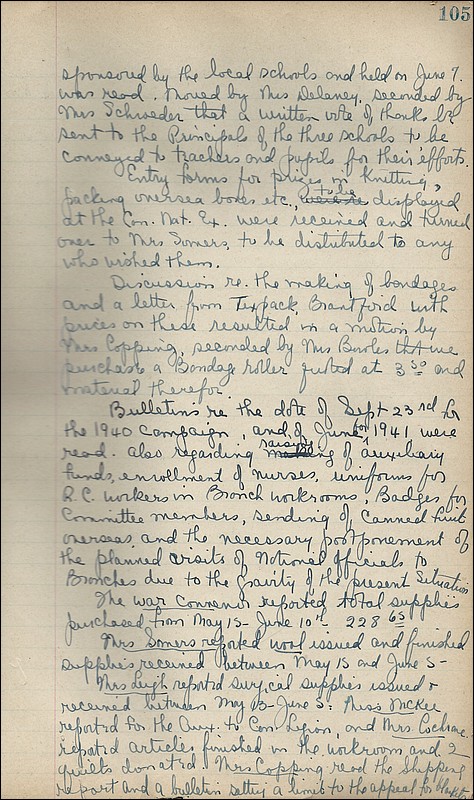 105
sponsored by the local schools and held on June 7.
was read. Moved by Mrs Delaney, seconded by
Mrs Schroeder that a written vote of thanks be
sent to the Principals of the three schools to be
conveyed to teachers and pupils for their efforts.
Entry forms for prizes in Knitting,
packing oversea boxes etc., to be displayed
at the Can. Nat. Ex. were received and turned
over to Mrs Somers, to be distributed to any
who wished them.
Discussion re. the making of bandages
and a letter from Texpack, Brantford with
prices on these resulted in a motion by
Mrs Copping, seconded by Mrs Bowles that we
purchase a Bandage roller quoted at 3 50 and
material therefor.
Bulletins re the date of Sept 23rd for
the 1940 campaign, and of June for 1941 were
read. also regarding raising of auxiliary
funds, enrollment of nurses, uniforms for
R.C. workers in Branch workrooms, Badges for
Committee members, sending of canned fruit
overseas, and the necessary postponement of
the planned visits of National Officials to
Branches due to the gravity of the present situation
The War Convenor reported total supplies
purchased from May 15 - June 10th - 228 65
Mrs Somers reported wool issued and finished
supplies received between May 15 and June 5 -
Mrs Leigh reported surgical supplies issued &
received between May 15 - June 5. Miss McKee
reported for the Aux. to Can. Legion, and Mrs. Cochrane
reported articles finished in the workroom and 2
quilts donated. Mrs Copping read the Shipping
report and a bulletin setting a limit to the appeal for blankets